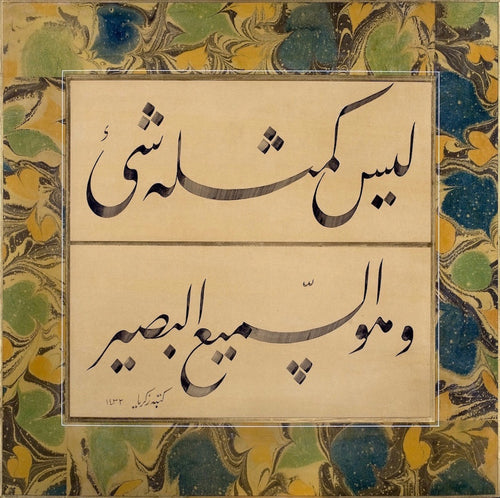 ليس كمثله شئ
وهو السميع البصير
كتبه زكريا ١٤٣٢